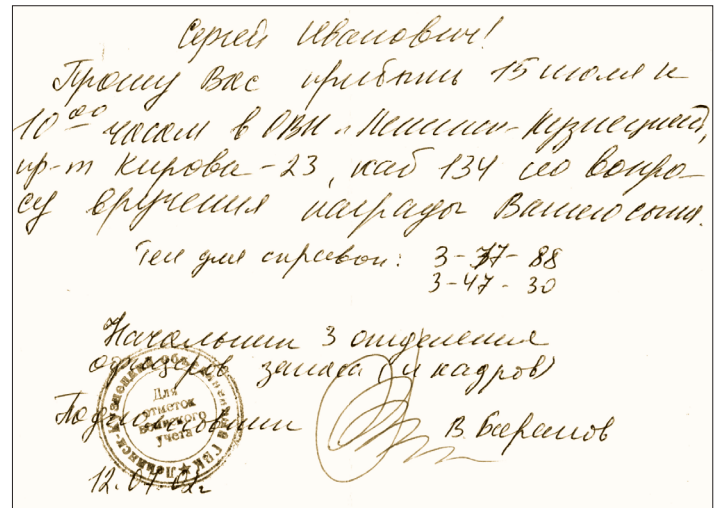 Сергей Иванович!
Прошу Вас прибыть 15 июля к
10 00 часам в ОВК г. Ленинск-Кузнецкий,
пр-т Кирова-23, каб 134 по вопро-
су вручения награды Вашего сына.
Тел для справок: 3-37-88
3-47-30
Начальник 3 отделения
офицеров запаса (и кадров)
Подполковник В. Баранов
12.07.02г
Для
отметок
воинского
учета
Ленинск-Кузнецкий объединенный ГВК